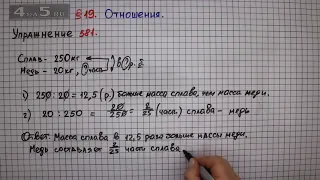 4 на 5.ru
§19. Отношения.
Упражнение 581.
Сплав - 250 кг
Медь - 20 кг, ? часть в ? р. Б
1) 250:20=12,5 (р.) больше масса сплава, чем масса меди.
2) 20:250 = 20/250 = 2/25 (часть) сплава - медь
Ответ: Масса сплава в 12,5 раз больше массы меди.
Медь составляет 2/25 части сплава